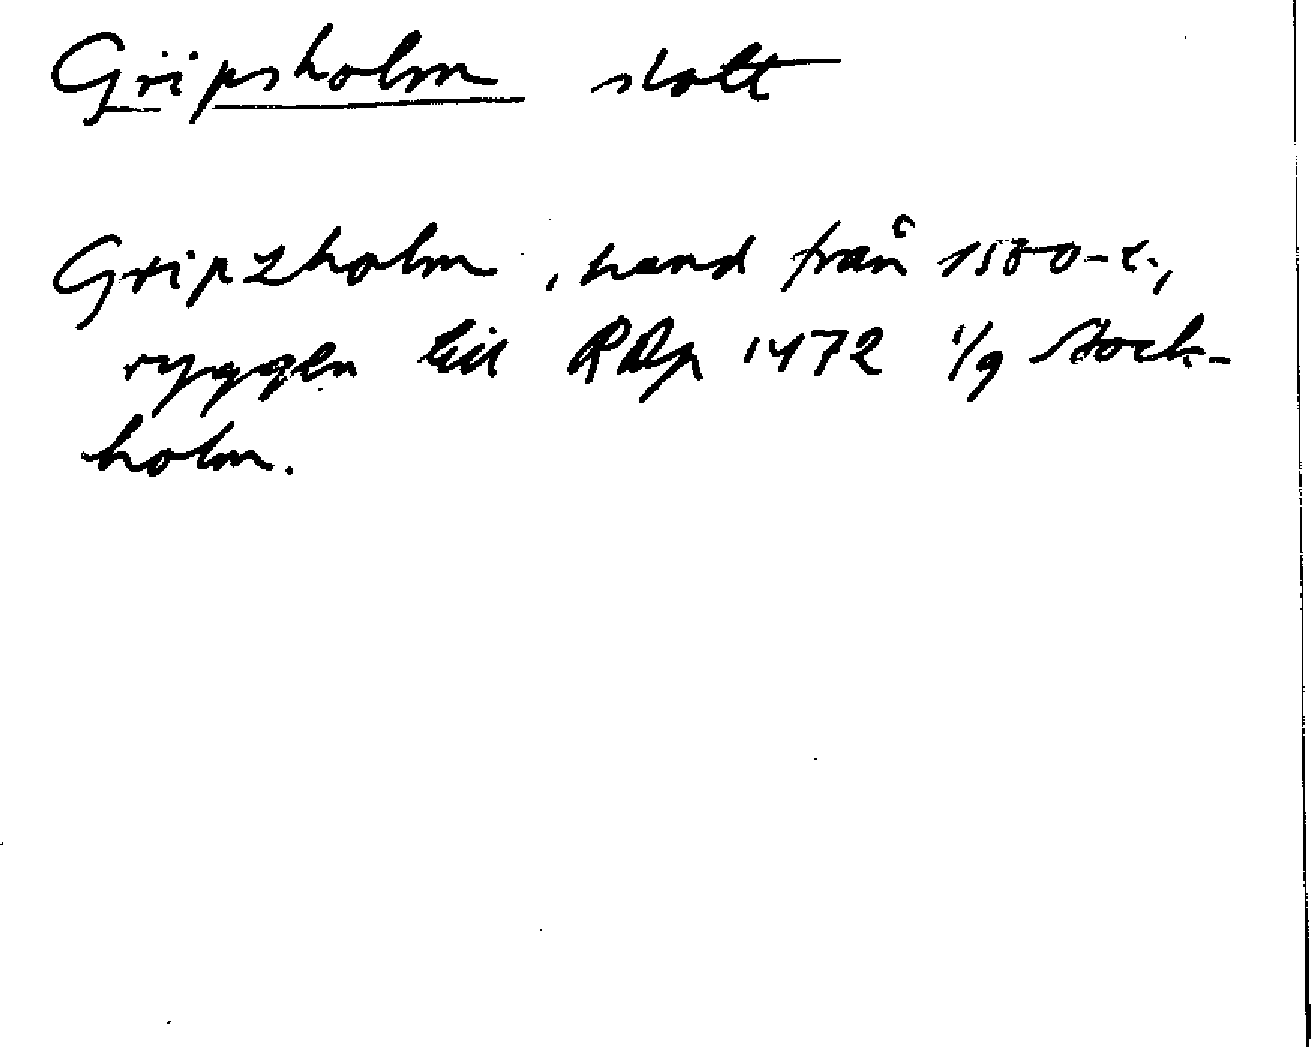 Gripsholm slott
Gripzholm, hand från 1500-t.,
ryggen till RApp 1472 1/9 Stock-
holm.